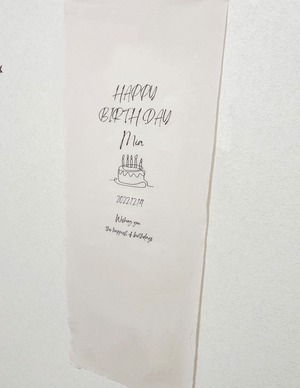 HAPPY
BIRTH DAY
Mia
2022.12.14
Wishing you
the happiest of birthdays